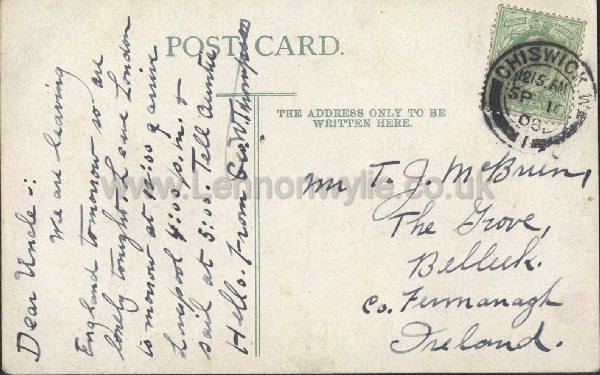 POST CARD.
THE ADDRESS ONLY TO BE
WRITTEN HERE.
CHISWICK. W
12.15.AM
SP 10
www.Lennonwylie.co.uk
Dear Uncle:
We are leaving
England tomorrow so are
lonely tonight. Leave London
tomorrow at 12:00 & arrive
Liverpool 4:00 p.m. &
sail at 5:00. Tell Auntie
Hello. From Geo W Thompson
Mr T. J. McBrien,
The Grove,
Belleek.
Co. Fermanagh
Ireland.